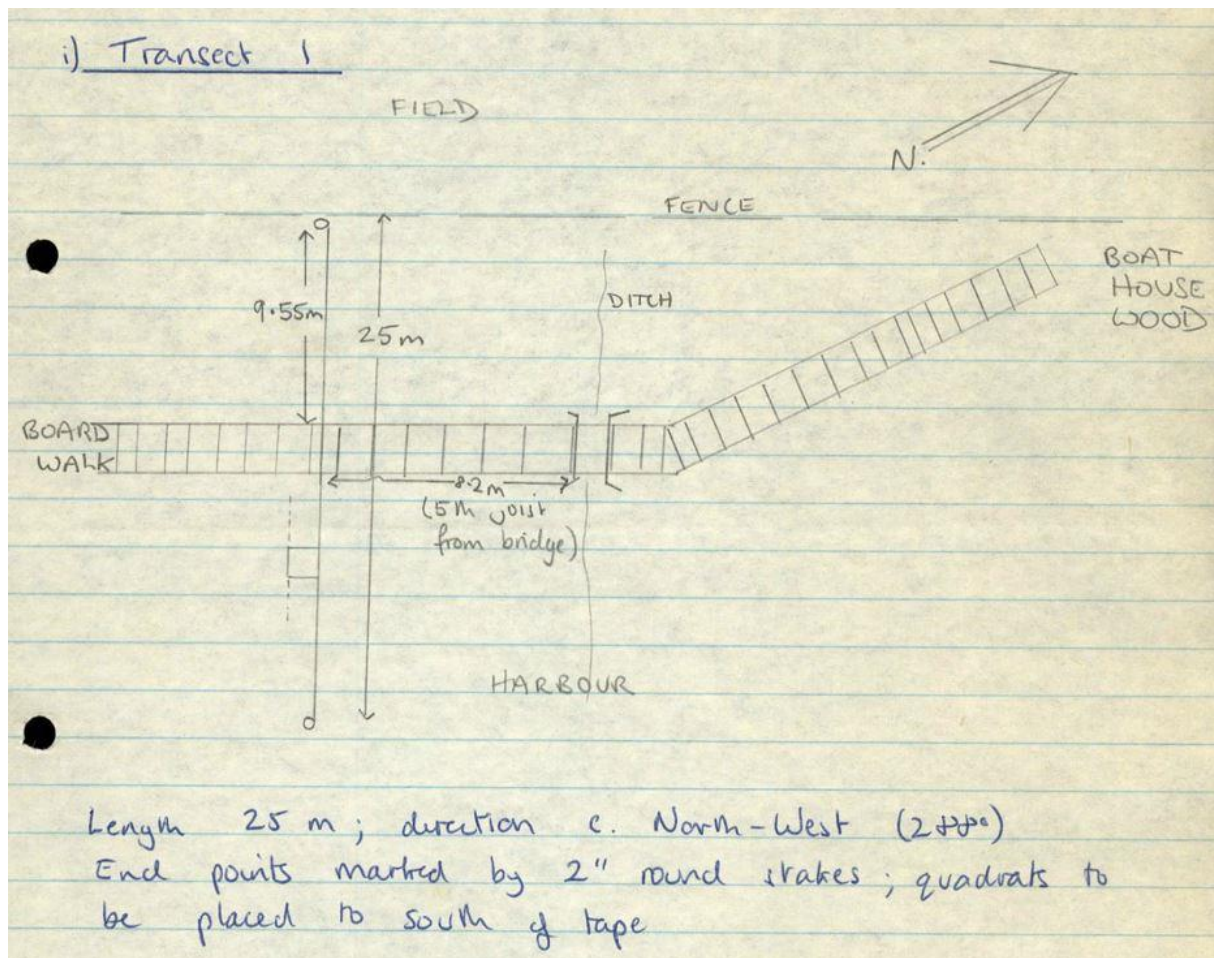 i) Transect 1
FIELD
N.
FENCE
BOAT
HOUSE
WOOD
DITCH
9.55m
25m
BOARD
WALK
8.2m
(5th joist
from bridge)
HARBOUR
Length 25 m; direction c. North-West
End points marked by 2" round stakes; quadrats to
be placed to south of tape